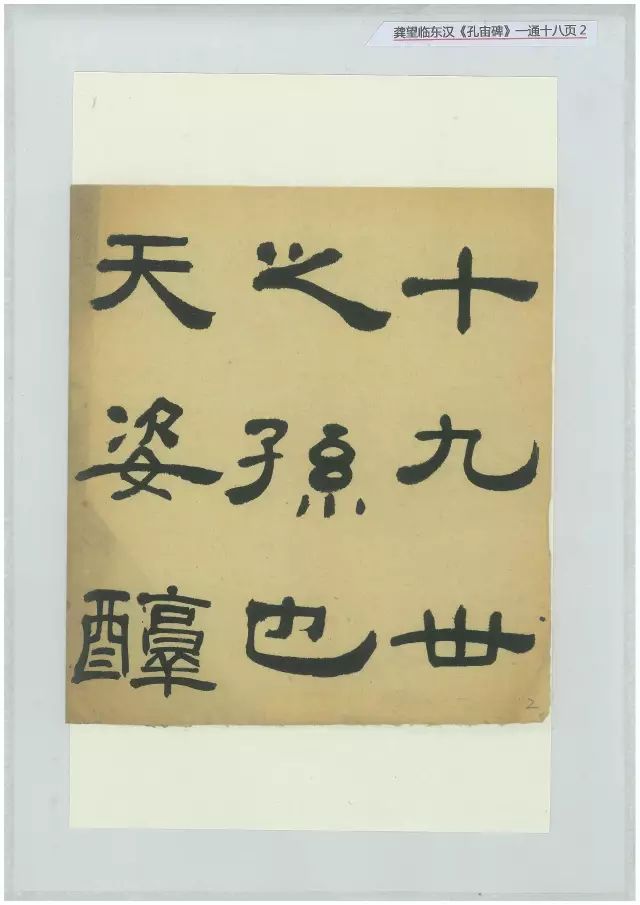 龚望临东汉《孔宙碑》一通十八页2
十九世
之孫也
天姿醇
2